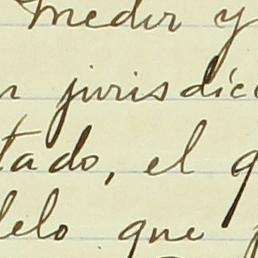 medir y
jurisdicc
tado, el q
lelo que